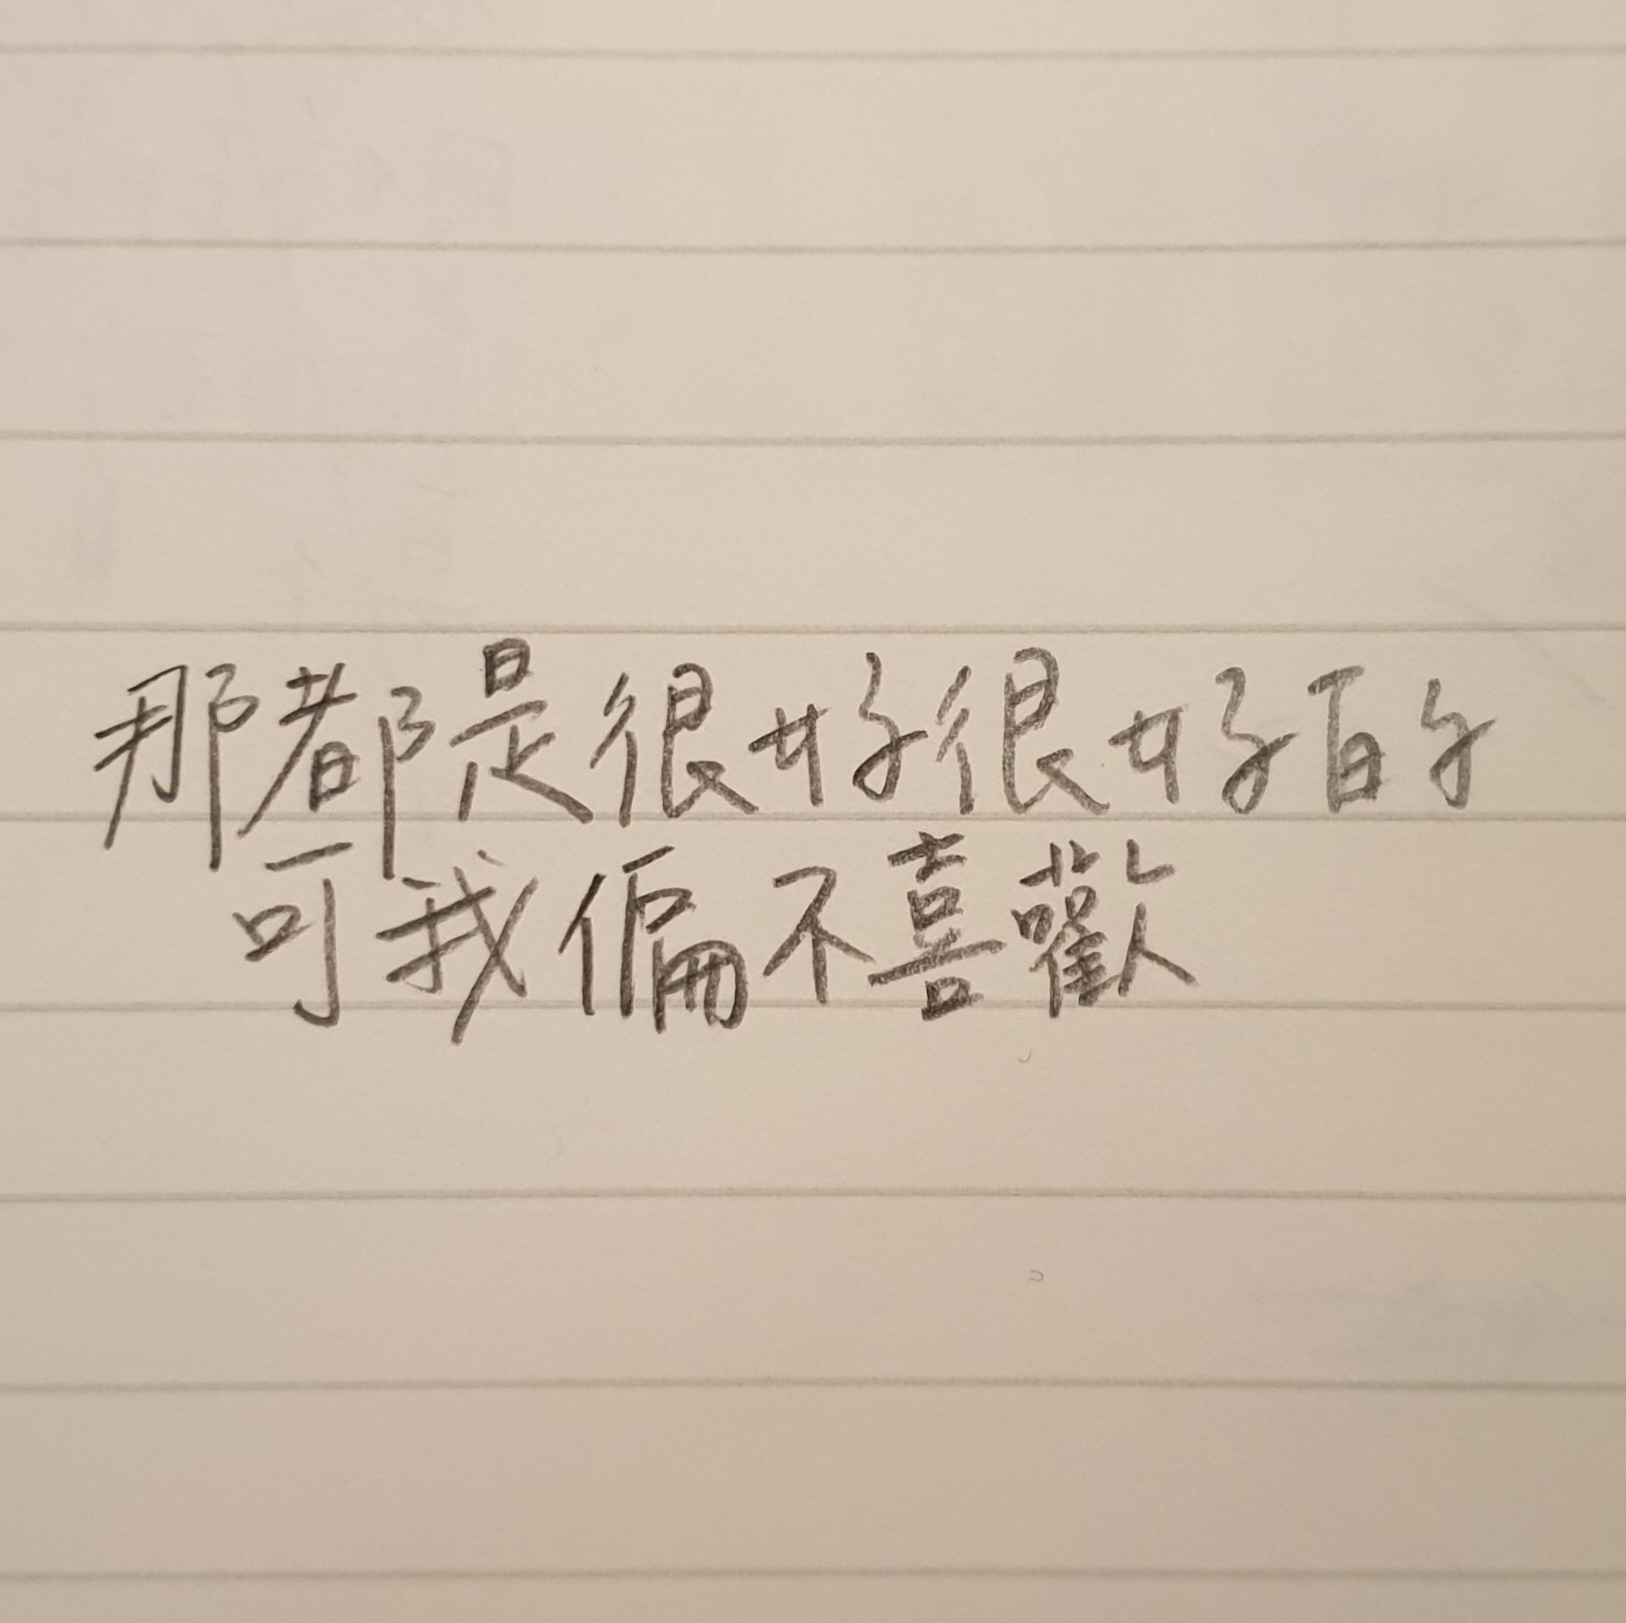 那都是很好很好的
可我偏不喜歡